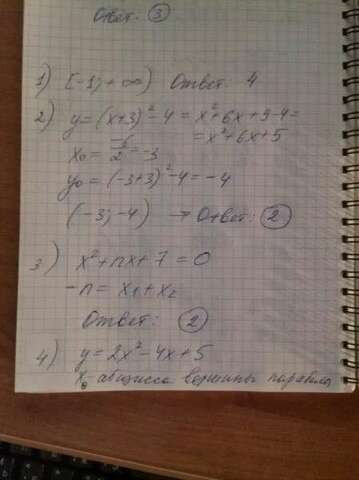 Ответ: 3
1) [-1; +∞) Ответ: 4
2) y = (x+3)² - 4 = x² + 6x + 9 - 4 =
= x² + 6x + 5
x₀ = -6/2 = -3
y₀ = (-3+3)² - 4 = -4
(-3; -4) → Ответ: 2
3) x² + nx + 7 = 0
-n = x₁ + x₂
Ответ: 2
4) y = 2x² - 4x + 5
x₀ абцисса вершины параболы